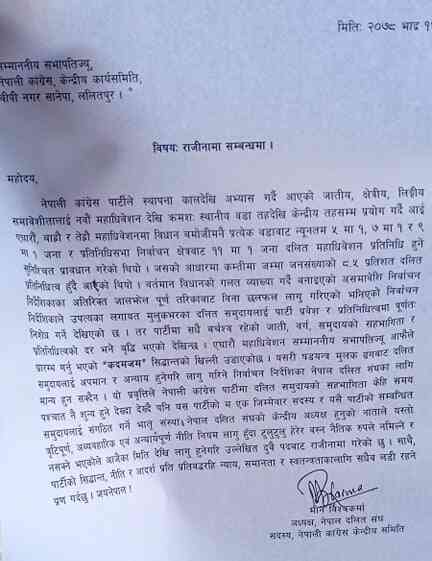 मितिः २०७८ भाद्र १
सम्माननीय सभापतिज्यू,
नेपाली कांग्रेस, केन्द्रीय कार्यसमिति,
बीपी नगर सानेपा, ललितपुर ।
विषयः राजीनामा सम्बन्धमा ।
महोदय,
नेपाली कांग्रेस पार्टीले स्थापना कालदेखि अभ्यास गर्दै आएको जातीय, क्षेत्रीय, लिङ्गीय
समावेशीतालाई नवौं महाधिवेशन देखि क्रमशः स्थानीय वडा तहदेखि केन्द्रीय तहसम्म प्रयोग गर्दै आई
एघारौं, बाह्रौं र तेह्रौं महाधिवेशनमा विधान बमोजीमनै प्रत्येक वडाबाट न्यूनतम ५ मा १, ७ मा १ र ९
मा १ जना र प्रतिनिधिसभा निर्वाचन क्षेत्रबाट ११ मा १ जना दलित महाधिवेशन प्रतिनिधि हुने
सुनिश्चित प्रावधान गरेको थियो । जसको आधारमा कम्तीमा जम्मा जनसंख्याको ८.५ प्रतिशत दलित
प्रतिनिधित्व हुँदै आएको थियो । वर्तमान विधानको गलत व्याख्या गर्दै बनाइएको असमावेशि निर्वाचन
निर्देशिकाका अतिरिक्त जालझेल पूर्ण तरिकाबाट विना छलफल लागु गरिएको भनिएको निर्वाचन
निर्देशिकाले उपत्यका लगायत मुलुकभरका दलित समुदायलाई पार्टी प्रवेश र प्रतिनिधित्वमा पूर्णतः
निशेध गर्ने देखिएको छ । तर पार्टीमा सधै बर्चश्व रहेको जाती, वर्ग, समुदायको सहभागिता र
प्रतिनिधित्वको दर भने बृद्धि भएको देखिन्छ । एघारौं महाधिवेशनमा सम्माननीय सभापतिज्यू आफैले
प्रारम्भ गर्नु भएको "कदमजम" सिद्धान्तको खिल्ली उडाएकोछ । यसरी षडयन्त्र मुलक ढगबाट दलित
समुदायलाई अपमान र अन्याय हुनेगरि लागु गरिने निर्वाचन निर्देशिका नेपाल दलित संघका लागि
मान्य हुन सक्दैन । यो प्रवृत्तिले नेपाली कांग्रेस पार्टीमा दलित समुदायको सहभागिता केहि समय
पश्चात नै शुन्य हुने देख्दा देख्दै पनि यस पार्टीको म एक जिम्मेवार सदस्य र यसै पार्टीको सम्बन्धित
समुदायलाई संगठित गर्ने भातृ संस्था नेपाल दलित संघको केन्द्रीय अध्यक्ष हुनुको नाताले यस्तो
त्रुटिपूर्ण, अव्यवहारिक एवं अन्यायपूर्ण नीति नियम लागु हुँदा टुलुटुलु हेरेर बस्न नैतिक रुपले नमिल्ने र
नसक्ने भएकोले आजैका मिति देखि लागु हुनेगरि उल्लेखित दुवै पदबाट राजीनामा गरेको छु । साथै,
पार्टीको सिद्धान्त, नीति र आदर्श प्रति प्रतिबद्धरहि न्याय, समानता र स्वतन्त्रताकालागि सधैव लडी रहने
प्रण गर्दछु । जयनेपाल !
मीन विश्वकर्मा
अध्यक्ष, नेपाल दलित संघ
सदस्य, नेपाली कांग्रेस केन्द्रीय समिति